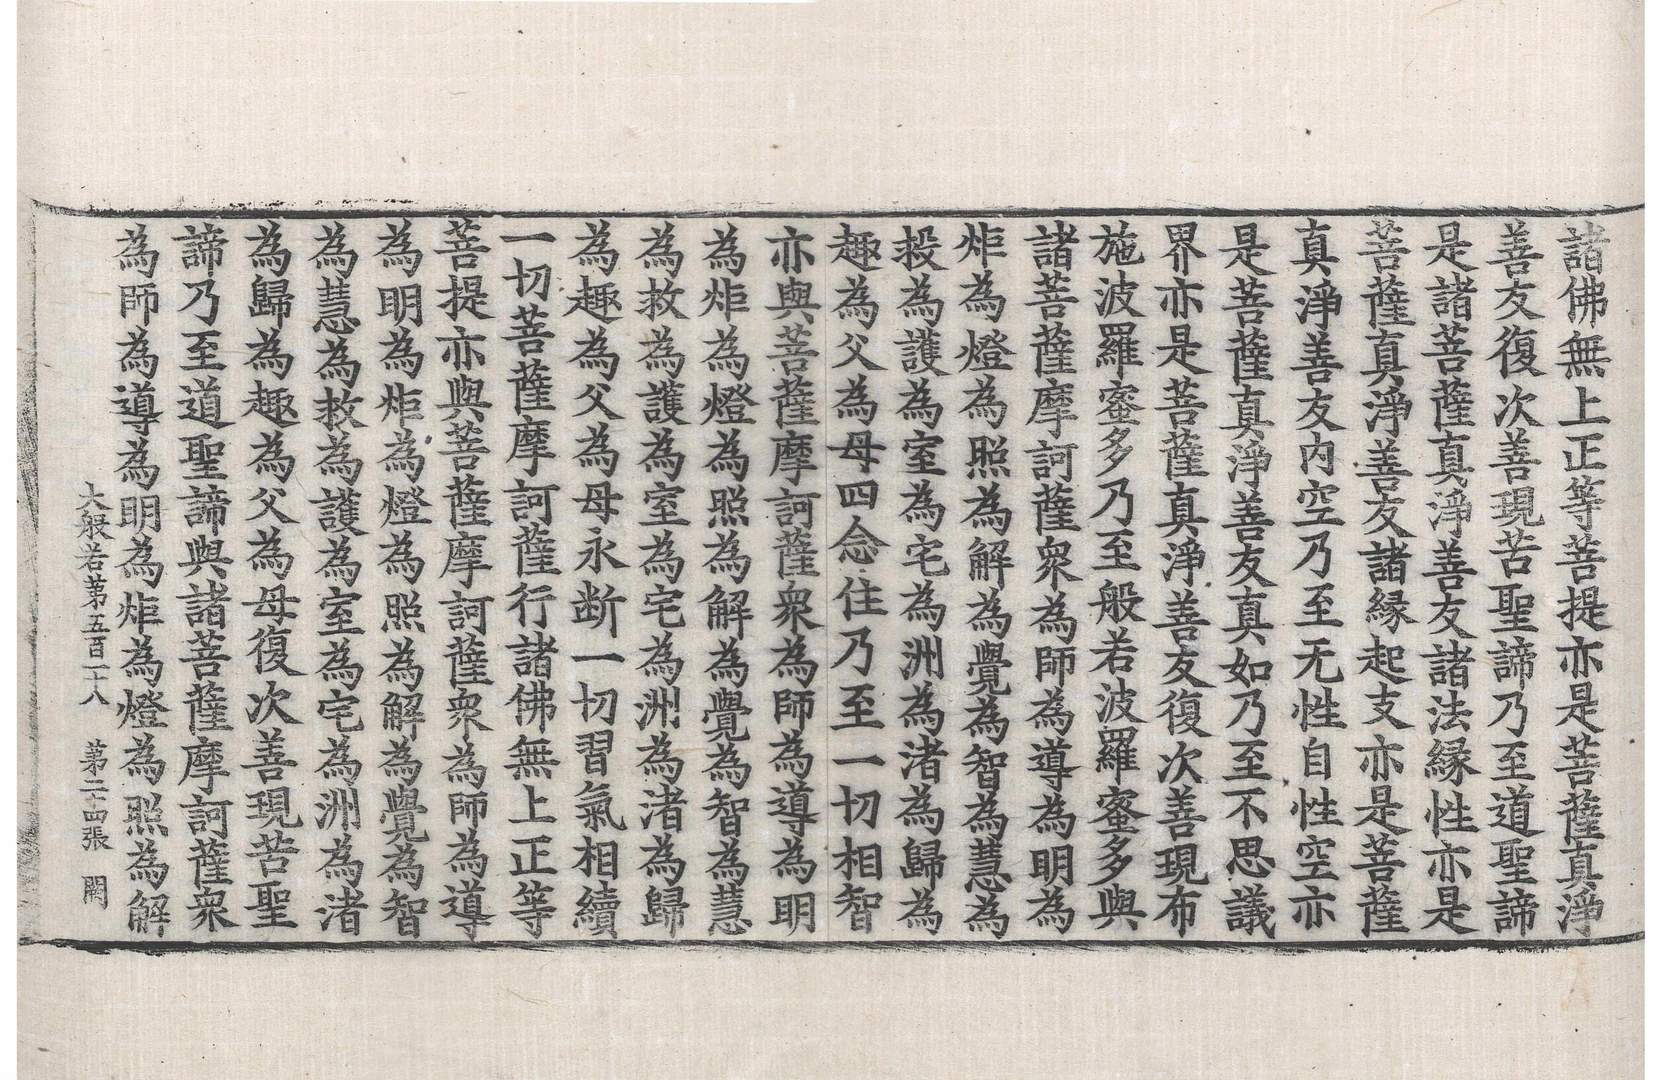 諸佛無上正等菩提亦是菩薩真淨
善友復次善現苦聖諦乃至道聖諦
是諸菩薩真淨善友諸法緣性亦是
菩薩真淨善友諸緣起支亦是菩薩
真淨善友內空乃至无性自性空亦
是菩薩真淨善友真如乃至不思議
界亦是菩薩真淨善友復次善現布
施波羅蜜多乃至般若波羅蜜多與
諸菩薩摩訶薩衆為師為導為明為
炬為燈為照為解為覺為智為慧為
救為護為室為宅為洲為渚為歸為
趣為父為母四念住乃至一切相智
亦與菩薩摩訶薩衆為師為導為明
為炬為燈為照為解為覺為智為慧
為救為護為室為宅為洲為渚為歸
為趣為父為母永断一切習氣相續
一切菩薩摩訶薩行諸佛無上正等
菩提亦與菩薩摩訶薩衆為師為導
為明為炬為燈為照為解為覺為智
為慧為救為護為室為宅為洲為渚
為歸為趣為父為母復次善現苦聖
諦乃至道聖諦與諸菩薩摩訶薩衆
為師為導為明為炬為燈為照為解
大般若第五百二十八 第二十四張 闕